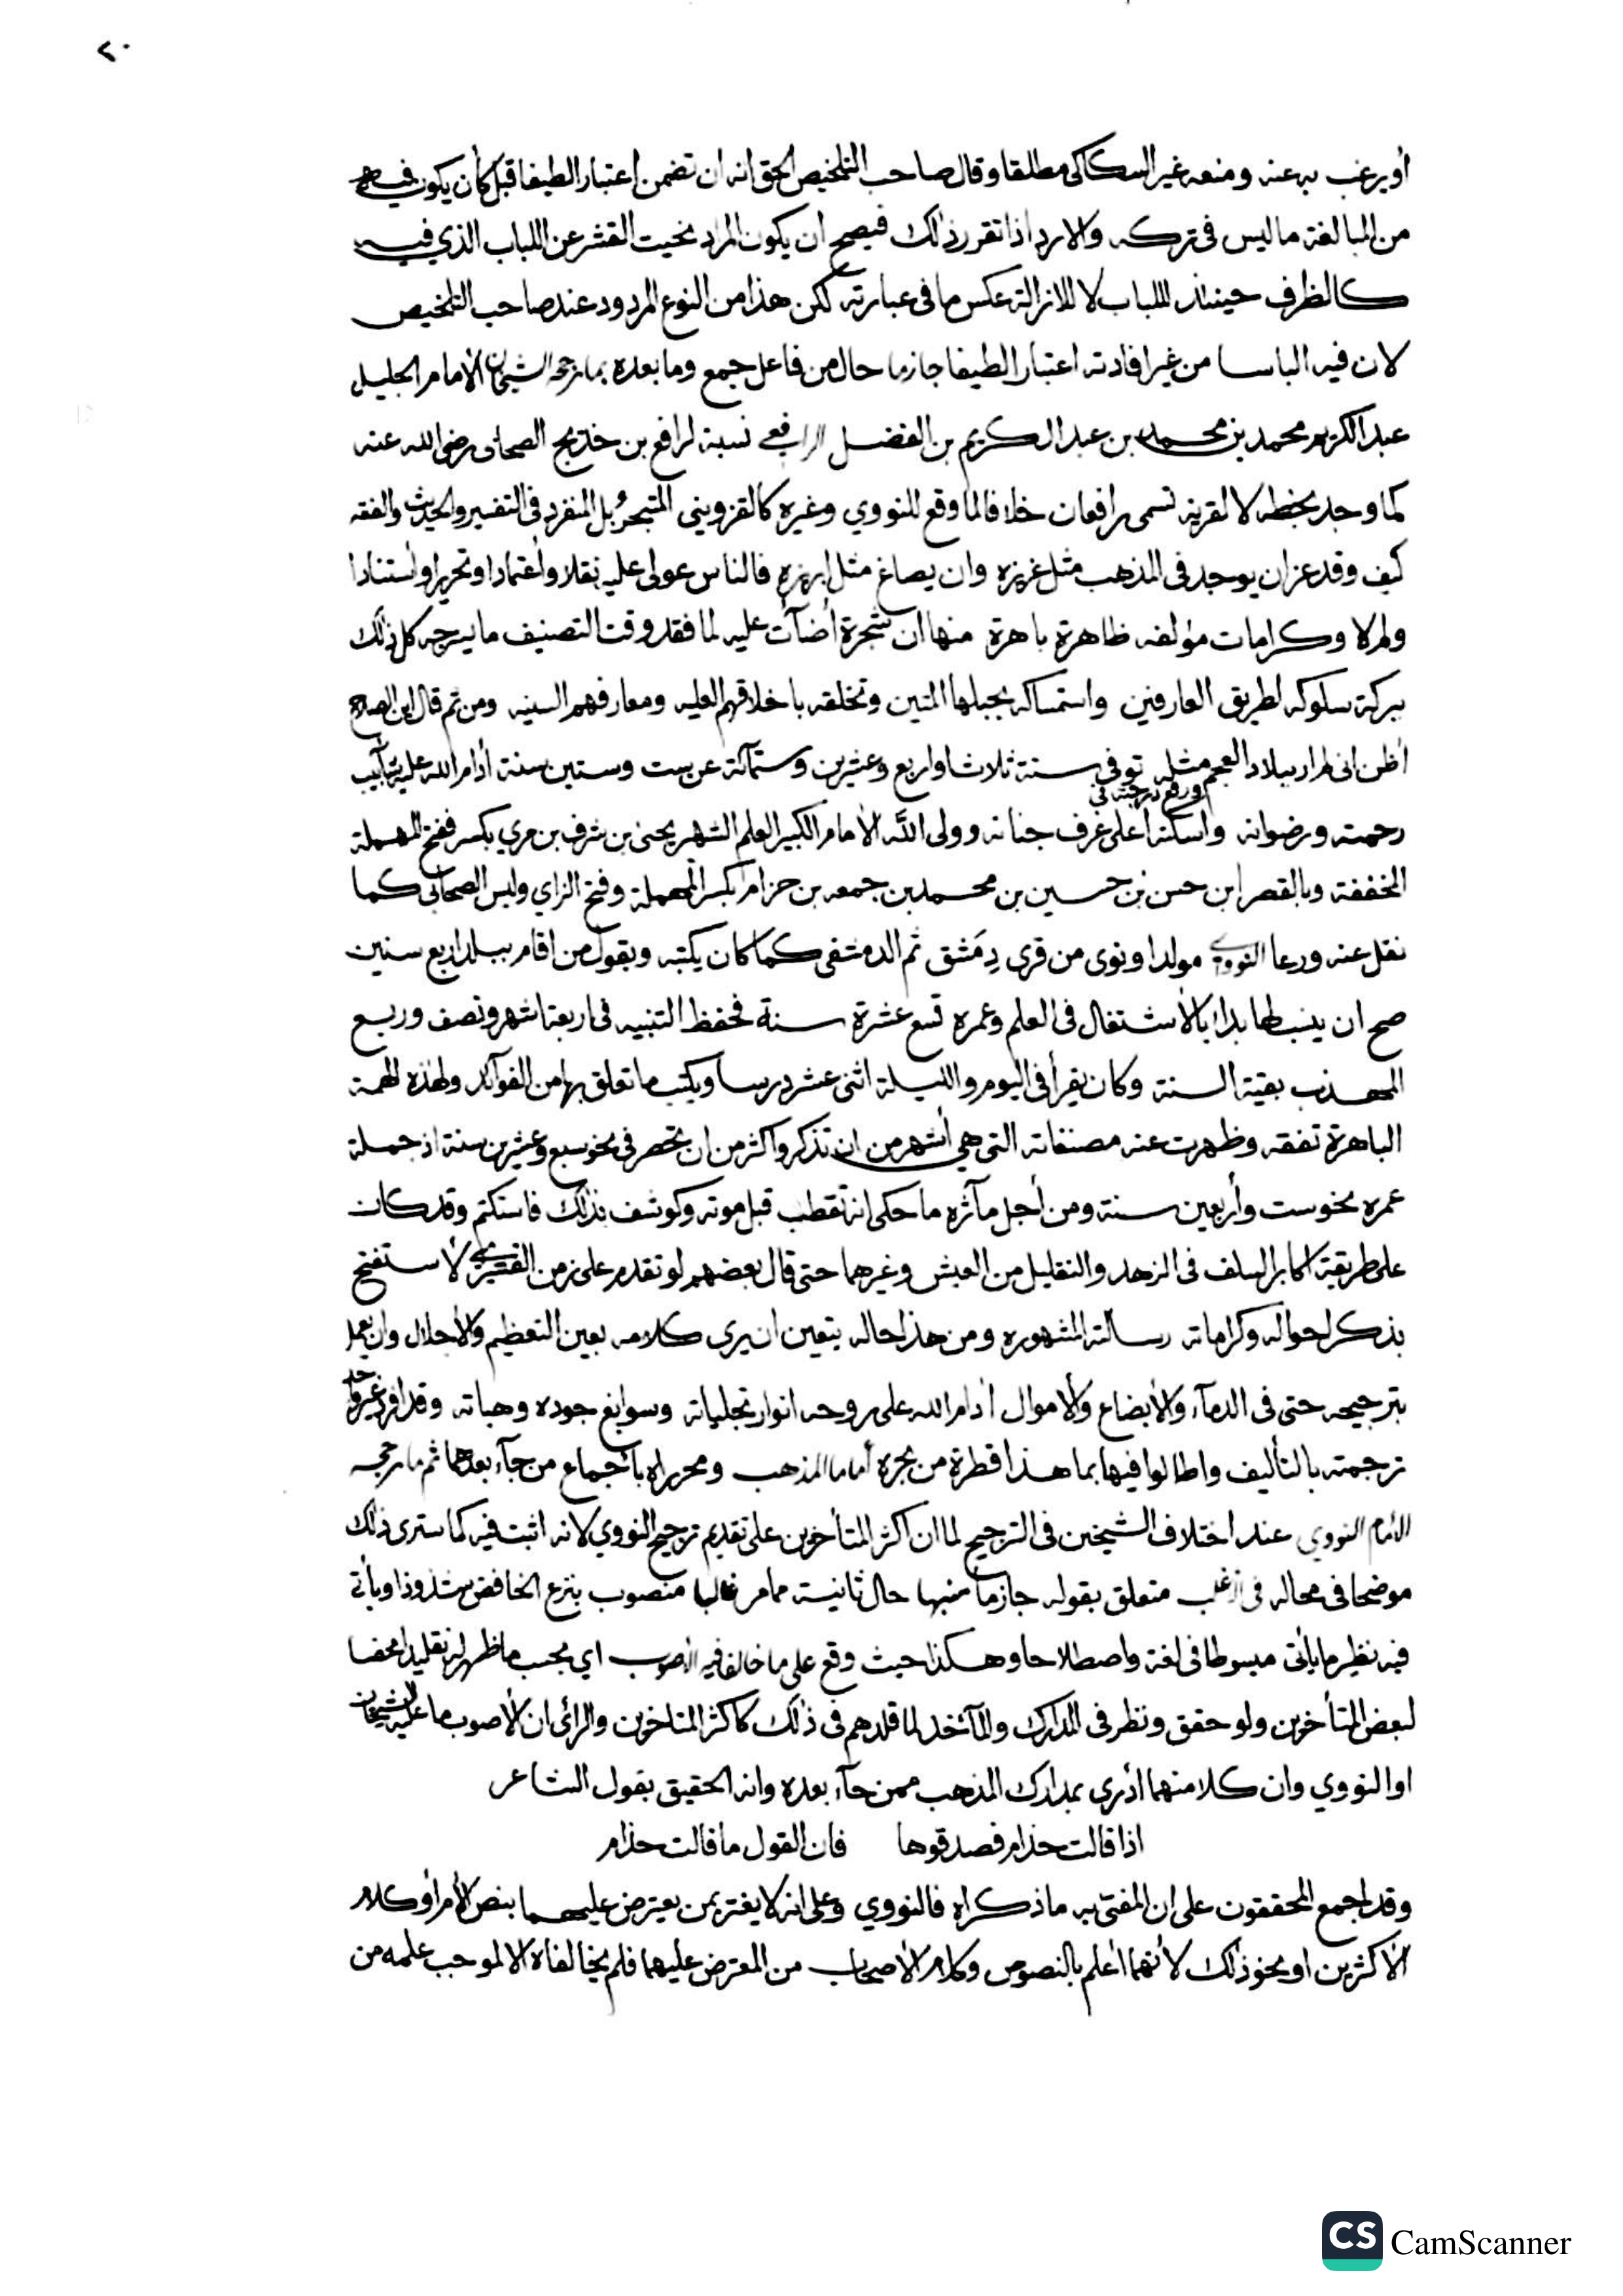 ٢٠
أو يرغب به عنه ومنعه غير السكاكي مطلقا وقال صاحب التلخيص الحق انه ان تضمن اعتبارا لطيفا قبل كأن يكون فيه
من المبالغة ما ليس في تركه والا رد اذا تقرر ذلك فيصح ان يكون المراد نحيت القشر عن اللباب الذي فيه
كالظرف حينئذ للباب لا للازالة عكس ما في عبارته لكن هذا من النوع المردود عند صاحب التلخيص
لان فيه الباسا من غير افادته اعتبارا لطيفا جازما حال من فاعل جمع وما بعده بما رجحه الشيخان الأمام الجليل
عبد الكريم محمد بن محمد بن عبد الكريم بن الفضل الرافعي نسبة لرافع بن خديج الصحابي رضي الله عنه
كما وجد بخطه لا لقرية تسمى رافعان خلافا لما وقع للنووي وغيره كالقزويني المتبحر بل المنفرد في التفسير والحديث والفقه
كيف وقد عز ان يوجد في المذهب مثل عزيزه وان يصاغ مثل ابريزه فالناس عولى عليه نقلا واعتمادا وتحريرا واستنادا
ولم لا وكرامات مؤلفه ظاهرة باهرة منها ان شجرة أضآت عليه لما فقد وقت التصنيف ما يسرجه كل ذلك
ببركة سلوكه لطريق العارفين واستمساكه بحبلها المتين وتخلقه باخلاقهم العليه ومعارفهم السنيه ومن ثم قال ابن الصلاح
أظن اني لم ار ببلاد العجم مثله توفي سنة ثلاث او اربع وعشرين وستمائة عن ست وستين سنة أدام الله عليه شآبيب
ورفع درجته في
رحمته ورضوانه واسكنه أعلى غرف جنانه وولى الله الأمام الكبير العلم الشهير يحيى بن شرف بن مري بكسر ففتح المهملة
المخففة وبالقصر ابن حسن بن حسين بن محمد بن جمعه بن حزام بكسر المهملة وفتح الزاي وليس الصحابي كما
نقل عنه ورعا النووي مولدا ونوى من قرى دمشق ثم الدمشقي كما كان يكتبه وبقول من اقام ببلد اربع سنين
صح ان ينسب لها بدا بالأشتغال في العلم وعمره تسع عشرة سنة فحفظ التنبيه في اربعة اشهر ونصف وربع
المهذب بقية السنة وكان يقرأ في اليوم والليلة اثنى عشر درسا ويكتب ما تعلق بها من الفوآئد ولهذه الهمة
الباهرة تفقه وظهرت عنه مصنفاته التي هي أشهر من ان تذكر واكثر من ان تحصر في نحو سبع وعشرين سنة اذ جملة
عمره نحو ست وأربعين سنة ومن أجل مآثره ما حكى انه تقطب قبل موته وكوشف بذلك فاستكتم وقد كان
على طريقة اكابر السلف في الزهد والتقليل من العيش وغيرهما حتى قال بعضهم لو تقدم على زمن القشيري لأستفتح
بذكر احواله وكراماته رسالته المشهوره ومن هذا حاله يتعين ان يرى كلامه بعين التعظيم والأجلال وان يعمل
بترجيحه حتى في الدمآء والأبضاع والأموال أدام الله على روحه انوار تجلياته وسوابغ جوده وهباته وقد افرد غير واحد
ترجمته بالتأليف واطالوا فيها بما هذا قطرة من بحره أماما المذهب ومحرراه باجماع من جآء بعدهما ثم ما رجحه
الأمام النووي عند اختلاف الشيخين في الترجيح لما ان اكثر المتأخرين على تقديم ترجيح النووي لانه اثبت فيه كما سترى ذلك
موضحا في محاله في اغلب متعلق بقوله جازما منبها حال ثانية مما مر غالبا منصوب بنزع الخافض شذوذا ويأتي
فيه نظير ما يأتي مبسوطا في لغة واصطلاحا وهكذا حيث وقع على ما خالفا فيه الأصوب اي بحسب ما ظهر له تقليدا محضا
لبعض المتأخرين ولو حقق ونظر في المدارك والمآخذ لما قلدهم في ذلك كاكثر المتاخرين والرأى ان الأصوب ما عليه الشيخان
او النووي وان كلا منهما أدرى بمدارك المذهب ممن جآء بعده وانه الحقيق بقول الشاعر
اذا قالت حذام فصدقوها فان القول ما قالت حذام
وقد اجمع المحققون على ان المفتى به ما ذكراه فالنووي وعلى انه لا يغتر بمن يعترض عليهما بنص الأم أو كلام
الأكثرين او نحو ذلك لأنهما أعلم بالنصوص وكلام الأصحاب من المعترض عليهما فلم يخالفاه الا لموجب علمه من
CS CamScanner